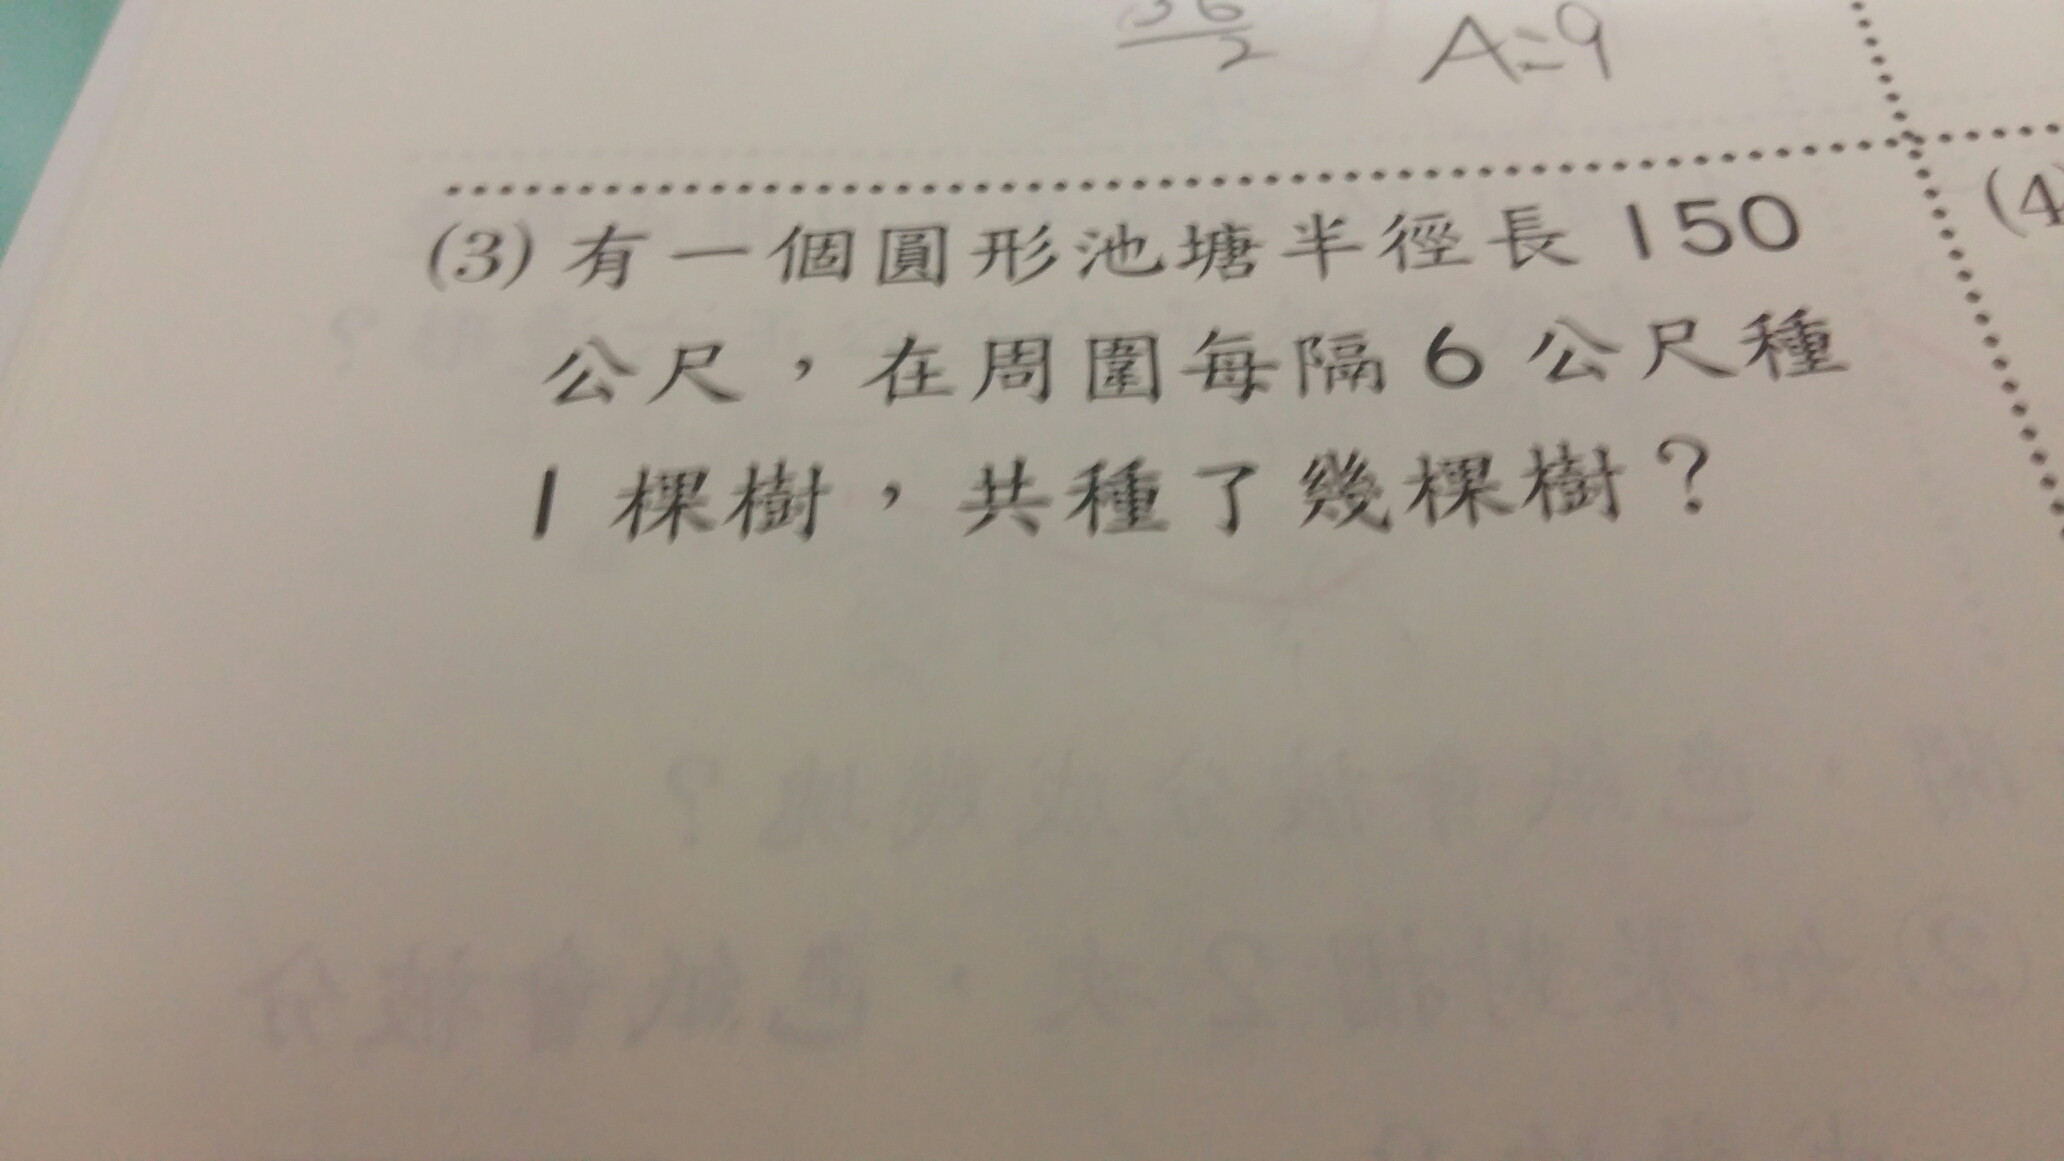 A=9
(3) 有一個圓形池塘半徑長 150
公尺，在周圍每隔 6 公尺種
1 棵樹，共種了幾棵樹？
(4